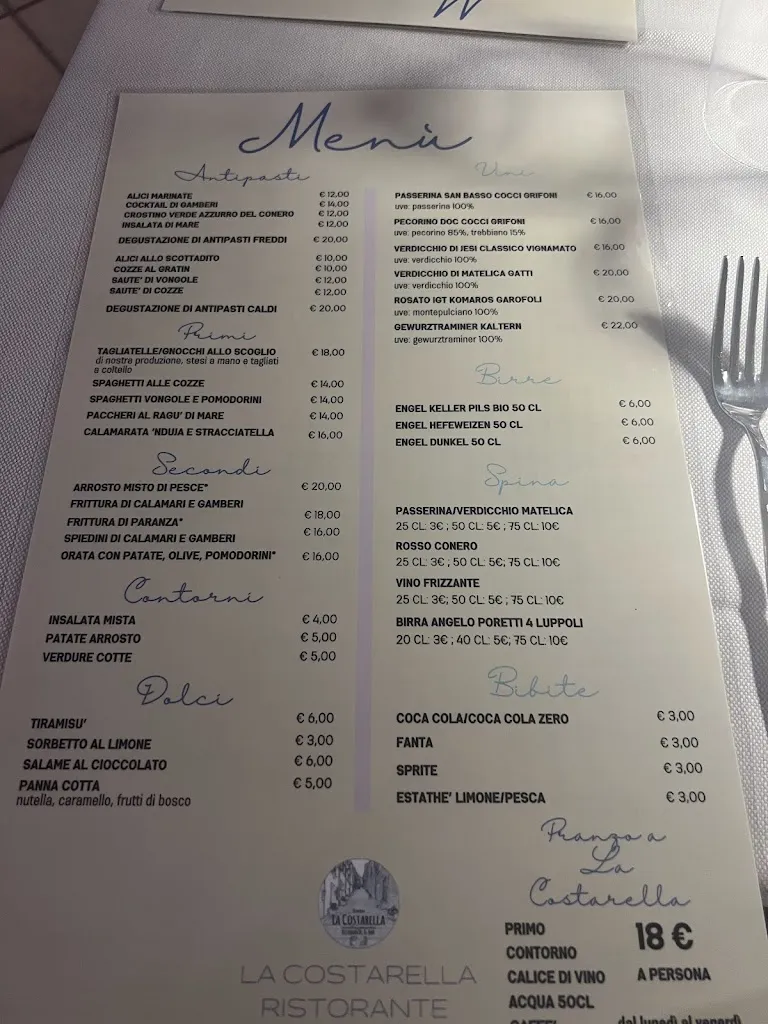 Menù
Antipasti
ALICI MARINATE € 12,00
COCKTAIL DI GAMBERI € 14,00
CROSTINO VERDE AZZURRO DEL CONERO € 12,00
INSALATA DI MARE € 12,00
DEGUSTAZIONE DI ANTIPASTI FREDDI € 20,00
ALICI ALLO SCOTTADITO € 10,00
COZZE AL GRATIN € 10,00
SAUTE' DI VONGOLE € 12,00
SAUTE' DI COZZE € 12,00
DEGUSTAZIONE DI ANTIPASTI CALDI € 20,00
Primi
TAGLIATELLE/GNOCCHI ALLO SCOGLIO € 18,00
di nostra produzione, stesi a mano e tagliati
a coltello
SPAGHETTI ALLE COZZE € 14,00
SPAGHETTI VONGOLE E POMODORINI € 14,00
PACCHERI AL RAGU' DI MARE € 14,00
CALAMARATA 'NDUJA E STRACCIATELLA € 16,00
Secondi
ARROSTO MISTO DI PESCE* € 20,00
FRITTURA DI CALAMARI E GAMBERI
FRITTURA DI PARANZA* € 18,00
SPIEDINI DI CALAMARI E GAMBERI € 16,00
ORATA CON PATATE, OLIVE, POMODORINI* € 16,00
Contorni
INSALATA MISTA € 4,00
PATATE ARROSTO € 5,00
VERDURE COTTE € 5,00
Dolci
TIRAMISU' € 6,00
SORBETTO AL LIMONE € 3,00
SALAME AL CIOCCOLATO € 6,00
PANNA COTTA € 5,00
nutella, caramello, frutti di bosco
Vini
PASSERINA SAN BASSO COCCI GRIFONI € 16,00
uve: passerina 100%
PECORINO DOC COCCI GRIFONI € 16,00
uve: pecorino 85%, trebbiano 15%
VERDICCHIO DI JESI CLASSICO VIGNAMATO € 16,00
uve: verdicchio 100%
VERDICCHIO DI MATELICA GATTI € 20,00
uve: verdicchio 100%
ROSATO IGT KOMAROS GAROFOLI € 20,00
uve: montepulciano 100%
GEWURZTRAMINER KALTERN € 22,00
uve: gewurztraminer 100%
Birre
ENGEL KELLER PILS BIO 50 CL € 6,00
ENGEL HEFEWEIZEN 50 CL € 6,00
ENGEL DUNKEL 50 CL € 6,00
Spina
PASSERINA/VERDICCHIO MATELICA
25 CL: 3€ ; 50 CL: 5€ ; 75 CL: 10€
ROSSO CONERO
25 CL: 3€ ; 50 CL: 5€; 75 CL: 10€
VINO FRIZZANTE
25 CL: 3€; 50 CL: 5€ ; 75 CL: 10€
BIRRA ANGELO PORETTI 4 LUPPOLI
20 CL: 3€ ; 40 CL: 5€; 75 CL: 10€
Bibite
COCA COLA/COCA COLA ZERO € 3,00
FANTA € 3,00
SPRITE € 3,00
ESTATHE' LIMONE/PESCA € 3,00
Pranzo a
La
Costarella
PRIMO
CONTORNO
CALICE DI VINO
ACQUA 50CL
CAFFE'
18 €
A PERSONA
dal lunedì al venerdì
LA COSTARELLA
LA COSTARELLA
RISTORANTE